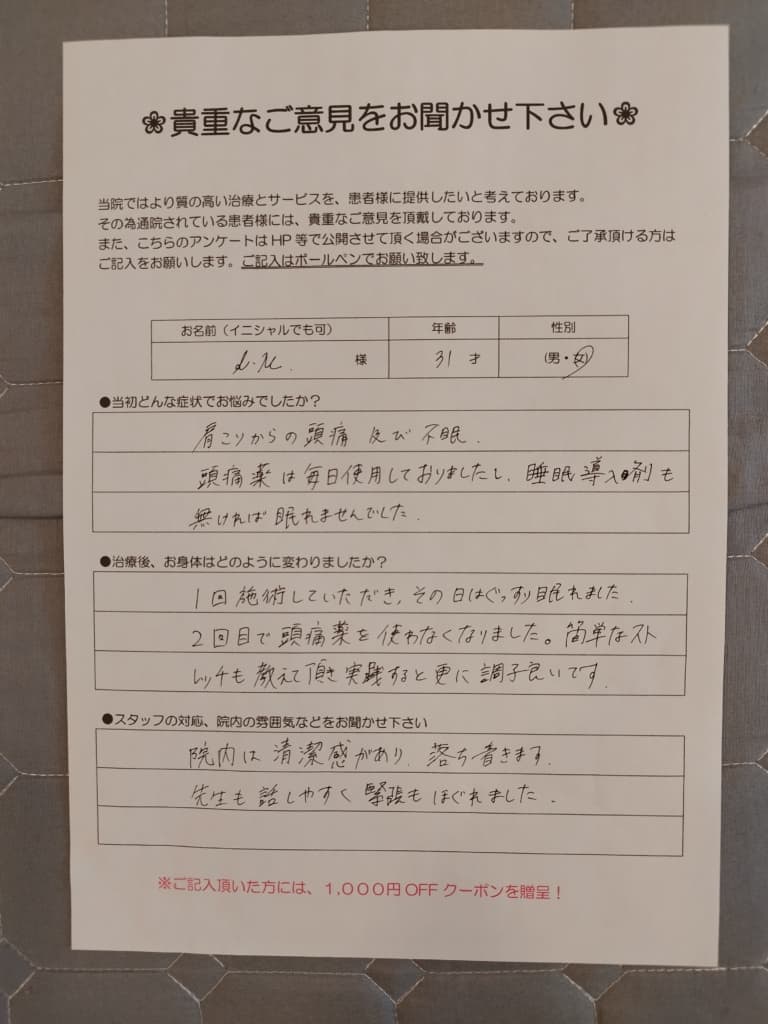 ❀貴重なご意見をお聞かせ下さい❀
当院ではより質の高い治療とサービスを、患者様に提供したいと考えております。
その為通院されている患者様には、貴重なご意見を頂戴しております。
また、こちらのアンケートはHP等で公開させて頂く場合がございますので、ご了承頂ける方は
ご記入をお願いします。ご記入はボールペンでお願い致します。
お名前（イニシャルでも可） 年齢 性別
様 31 才 (男・女)
●当初どんな症状でお悩みでしたか？
肩こりからの頭痛 及び 不眠.
頭痛薬は毎日使用しておりましたし、睡眠導入剤も
無ければ眠れませんでした.
●治療後、お身体はどのように変わりましたか？
1回施術していただき,その日はぐっすり眠れました.
2回目で頭痛薬を使わなくなりました。簡単なスト
レッチも教えて頂き実践すると更に調子良いです.
●スタッフの対応、院内の雰囲気などをお聞かせ下さい
院内は清潔感があり、落ち着きます.
先生も話しやすく緊張もほぐれました.
※ご記入頂いた方には、１,０００円OFFクーポンを贈呈！